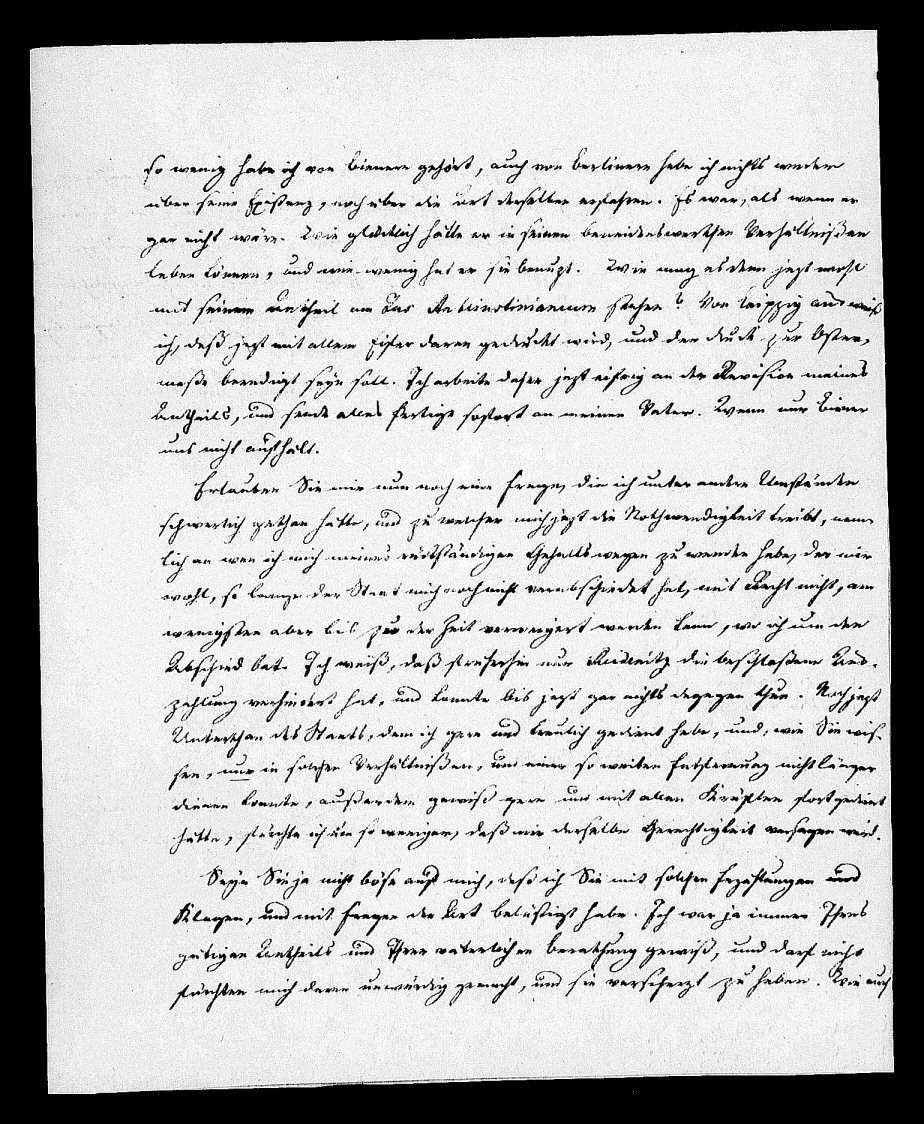 so wenig habe ich von Bienern gehört, auch von Berlinern habe ich nichts weder
über seine Existenz, noch über die Art derselben erfahren. Es war, als wenn er
gar nicht wäre. Wie glücklich hätte er in seinen beneidenswerthen Verhältnißen
leben können, und wie wenig hat er sie benuzt. Wie mag es denn jezt wohl
mit seinem Antheil am Das stehen? Von Leipzig aus weiß
ich, daß jezt mit allem Eifer daran gedruckt wird, und der Druck zur Oster-
meße beendigt seyn soll. Ich arbeite daher jezt eifrig an der Revision meines
Antheils, und sende alles fertige sofort an meinen Vater. Wenn nur Biener
uns nicht aufhält.
Erlauben Sie mir nun noch eine Frage, die ich unter andern Umständen
schwerlich gethan hätte, und zu welcher mich jezt die Nothwendigkeit treibt, nem-
lich an wen ich mich meines rückständigen Gehalts wegen zu wenden habe, der mir
wohl, so lange der Staat mich noch nicht verabschiedet hat, mit Recht nicht, am
wenigsten aber bis zu der Zeit verweigert werden kann, wo ich um den
Abschied bat. Ich weiß, daß früherhin nur die beschloßene Aus-
zahlung verhindert hat, und konnte bis jezt gar nichts dagegen thun. Noch jezt
Unterthan des Staats, dem ich gern und treulich gedient habe, und, wie Sie wis-
sen, nur in solchen Verhältnißen, und einer so weiten Entfernung nicht länger
dienen konnte, außerdem gewiß gern und mit allen Kräften fortgedient
hätte, fürchte ich um so weniger, daß mir derselbe Gerechtigkeit versagen wird.
Seyn Sie ja nicht böse auf mich, daß ich Sie mit solchen Erzählungen und
Klagen, und mit Fragen der Art belästigt habe. Ich war ja immer Ihres
gütigen Antheils und Ihrer väterlichen Berathung gewiß, und darf nicht
fürchten mich deren unwürdig gemacht, und sie verscherzt zu haben. Wie auch